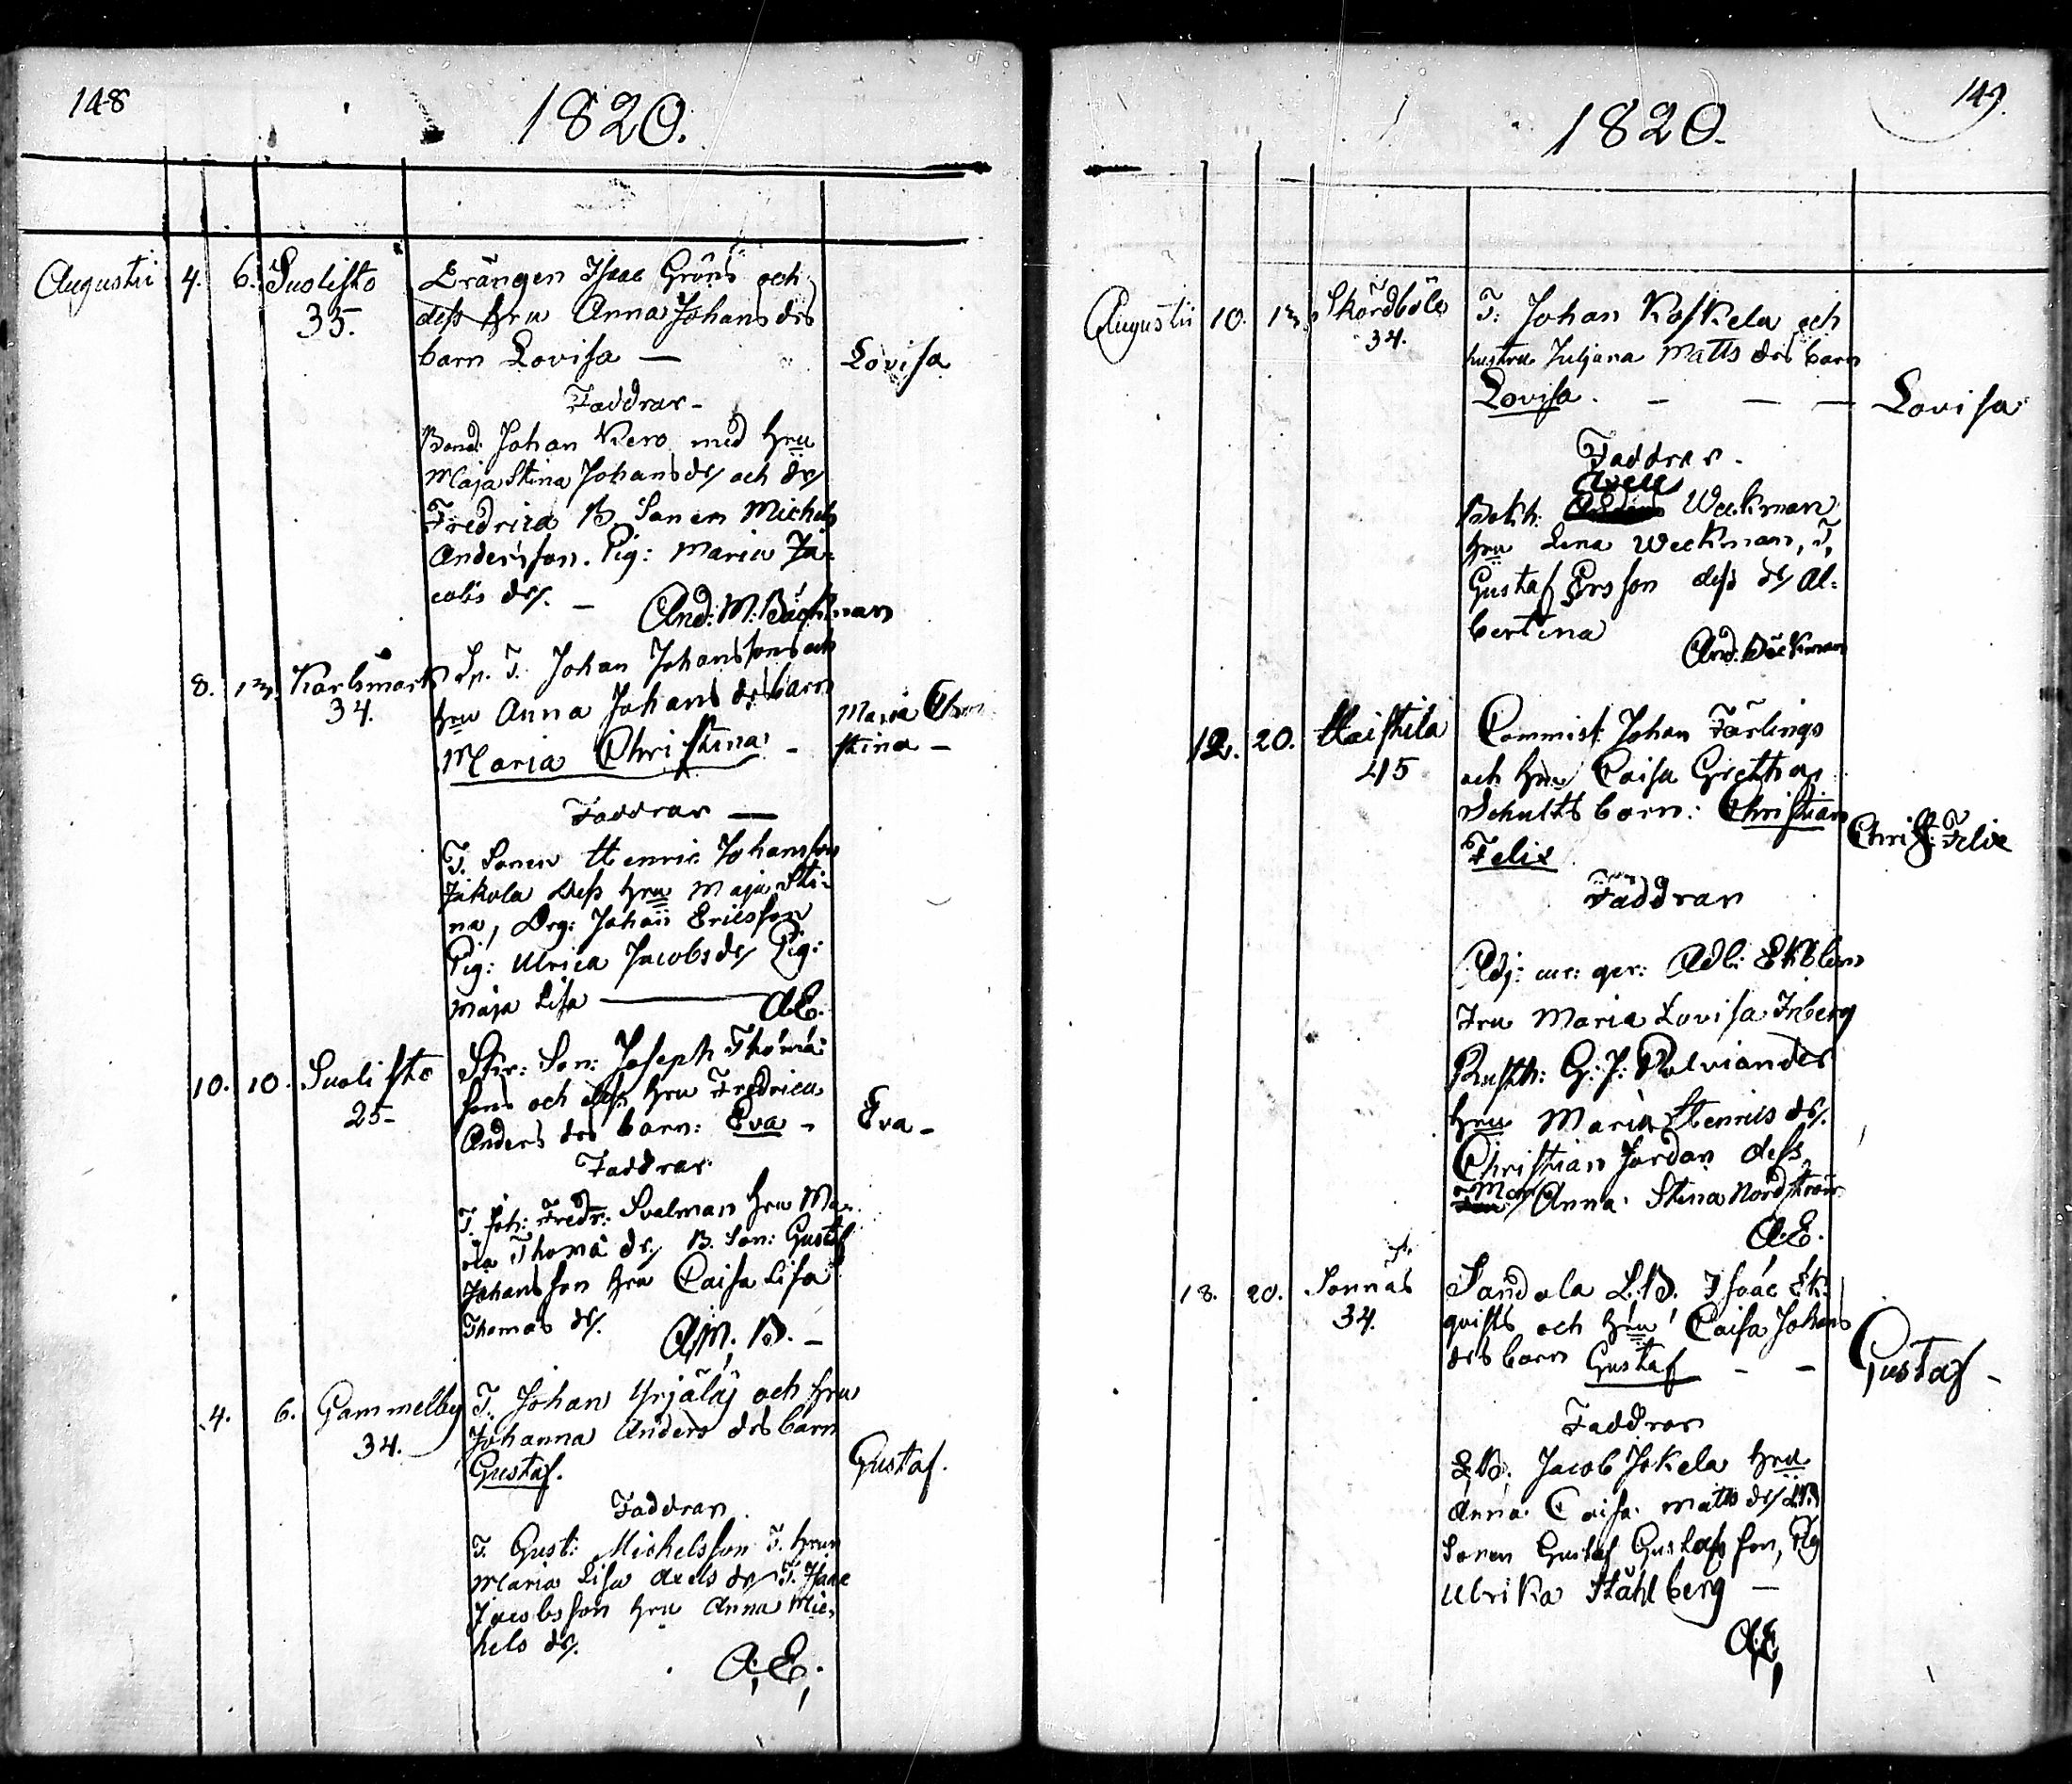 148
1820.
Augustii 4. 6. Suolisto
35.
Drängen Isaac Gröns och
dess hru Anna Johans drs
barn Lovisa —
Lovisa
Faddrar -
Bond: Johan Kero med hru
Maja Stina Johansdr och dr
Fredrica B. Sonen Michel
Andersson. Pig: Maria Ja-
cobs dr. —
And: M: Bäckman
8. 13. Karlsmark
34.
Sv. T. Johan Johanssons och
hru Anna Johans drs barn
Maria Christina -
Maria Chri
stina -
Faddrar —
T. Sonen Henric Johansson
Jakola dess hru Maja Sti-
na, Drg: Johan Ericsson
Pig: Ulrica Jacobsdr Pig:
Maja Lisa — A.E.
10. 10. Suolisto
25-
Son: Joseph Thomæ
sons och dess hru Fredrica
Anders drs barn: Eva -
Eva -
Faddrar
T. Joh: Fredr: Svalman hru Ma-
ria Thomæ dr, B. Son: Gustaf
Johansson hru Caisa Lisa
Thomas dr.
A.M. B. -
4. 6. Gammelby
34.
T. Johan Yrjäläs och hru
Johanna Anders drs barn
Gustaf.
Gustaf.
Faddrar
T. Gust: Michelsson T. hrun
Maria Lisa Axels dr T. Isaac
Jacobsson hru Anna Mic-
hels dr.
A.E.
149.
1820.
Augustii 10. 13. Skördböle
34.
T. Johan Koskela och
hustru Juljana Matts drs barn
Lovisa. — — —
Lovisa
Faddrar.
Axell
Bokh: Weckman
hru Lena Weckman, T,
Gustaf Ersson dess dr Al:
bertina
And. Bäckman
12. 20. Haistila
45
Commist Johan Färlings
och hru Caisa Gretha
Schults barn: Christian
Felix
Christ: Felix
Faddrar
Adj: cur: ger: Adl: Ekblom
Fru Maria Lovisa Inberg
Rusth: G: J: Polviander
hru Maria Henrics dr.
Christian Jordan dess
Mor Anna Stina Nordström
A.E.
18. 20. Sonnäs
34.
Sandola L.B. Isaac Ek-
qvists och hru Caisa Johans
drs barn Gustaf - -
Gustaf -
Faddrar
L.B. Jacob Jokela hru
Anna Caisa Matts dr L.B.
Sonen Gustaf Gustafsson, Pig
Ulrika Ståhlberg —
A.E.